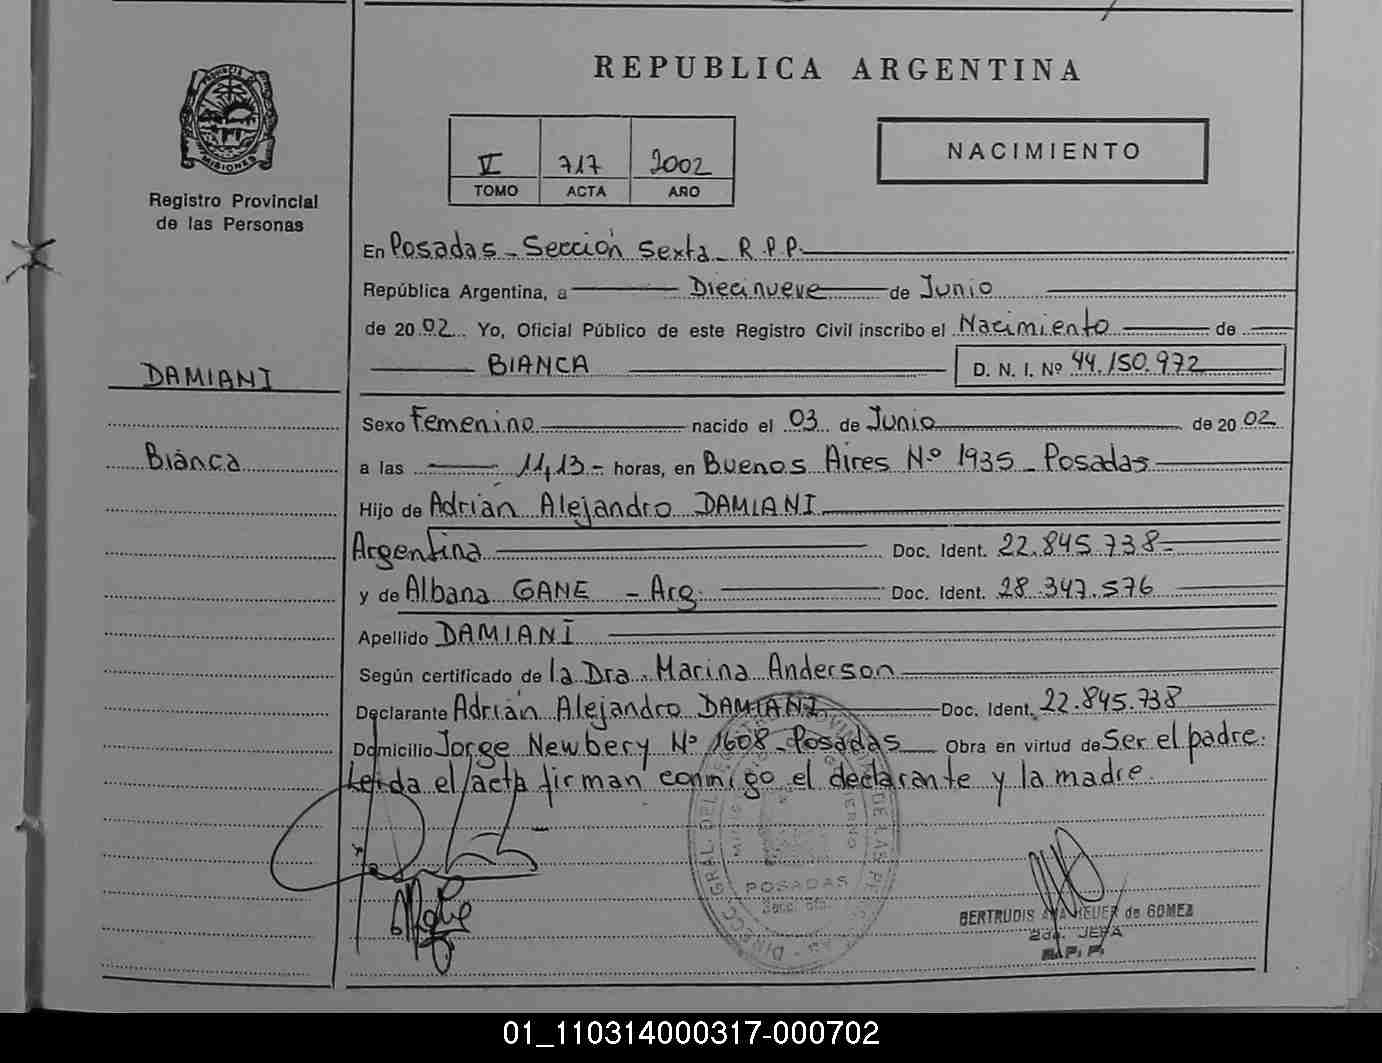 REPUBLICA ARGENTINA
PROVINCIA DE
MISIONES
Registro Provincial
de las Personas
V 717 2002
TOMO ACTA AÑO
NACIMIENTO
En Posadas - Sección Sexta - R.P.P.
República Argentina, a Diecinueve de Junio
de 2002 Yo, Oficial Público de este Registro Civil inscribo el Nacimiento de
BIANCA D. N. I. Nº 44.150.972
DAMIANI
Sexo Femenino nacido el 03 de Junio de 2002
Bianca
a las 11,13 - horas, en Buenos Aires Nº 1935 - Posadas
Hijo de Adrián Alejandro DAMIANI
Argentina Doc. Ident. 22.845.738-
y de Albana GANE - Arg. Doc. Ident. 28.347.576
Apellido DAMIANI
Según certificado de la Dra. Marina Anderson
Declarante Adrián Alejandro DAMIANI Doc. Ident. 22.845.738
Domicilio Jorge Newbery Nº 1608 - Posadas Obra en virtud de Ser el padre.
Leida el acta firman conmigo el declarante y la madre.
POSADAS
Secc. 6ta.
BERTRUDIS ANA HEUER de GOMEZ
2da. JEFA
R.P.P.
01_110314000317-000702